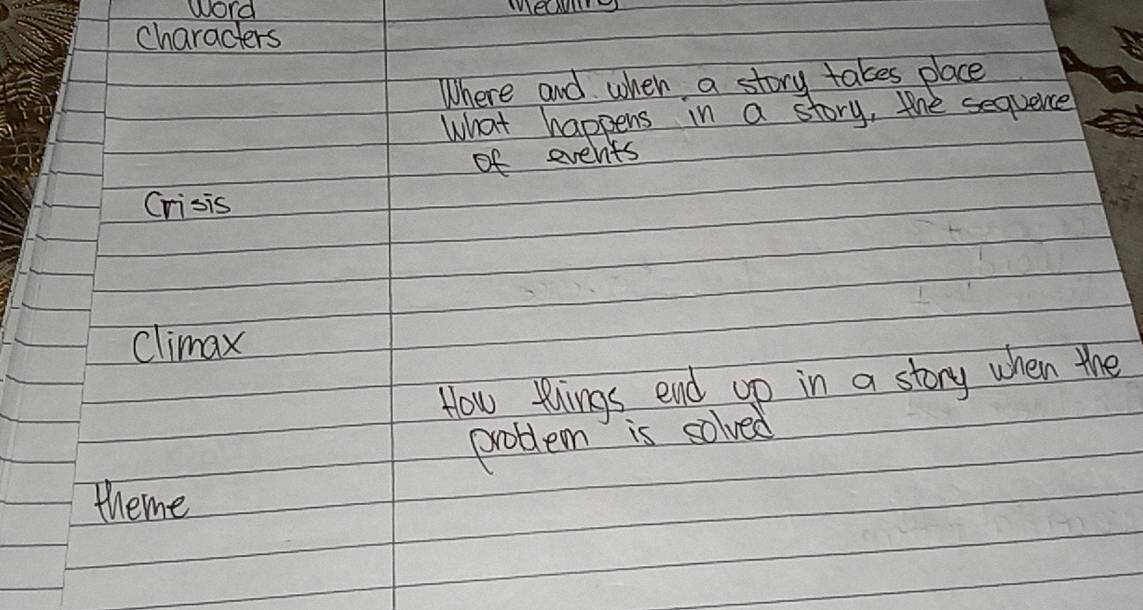 Word Meaning
Characters
Where and when a story takes place
What happens in a story, the sequence
of events
Crisis
Climax
How things end up in a story when the
problem is solved
theme